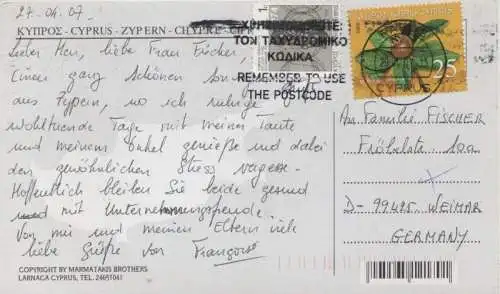 27.04.07.
ΚΥΠΡΟΣ - CYPRUS - ZYPERN - CHYPRE - CIPRO
ΧΡΗΣΙΜΟΠΟΙΕΙΤΕ:
ΤΟΝ ΤΑΧΥΔΡΟΜΙΚΟ
ΚΩΔΙΚΑ
REMEMBER TO USE
THE POSTCODE
CYPRUS
25
Lieber Herr, liebe Frau Fischer,
Einen ganz schönen
aus Zypern, wo ich ruhige
wohltuende Tage mit meiner Tante
und meinem Onkel genieße und dabei
den gewöhnlichen Stress vergesse.
Hoffentlich bleiben Sie beide gesund
und mit Unternehmungsfreude.
Von mir und meinen Eltern viele
liebe Grüße von Françoise
An Familie FISCHER
Fröbelstr. 10a
D- 99425 WEIMAR
GERMANY
COPYRIGHT BY MARMATAKIS BROTHERS
LARNACA CYPRUS, TEL. 24651041